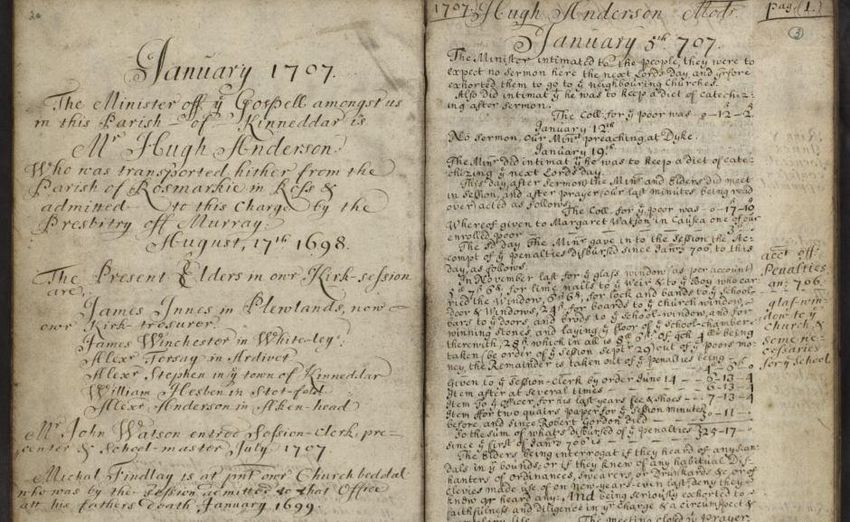 20
January 1707.
The Minister off ye Gospell amongst us
in this Parish of Kinneddar is
Mr Hugh Anderson
Who was transported hither from the
Parish of Rosmarkie in Ross &
admitted to this Charge by the
Presbitry off Murray
August, 17th 1698.
The Present Elders in owr Kirk-session
are,
James Innes in Plewlands, now
owr Kirk-treasuror
James Winchester in White-ley
Alexr Forsay in Ardivet
Alexr Stephen in ye town of Kinneddar
William Hesben in Stot-fold
Alexr Anderson in Aken-head
Mr John Watson entred Session-Clerk, pre-
center & School-master July 1707
Michal Findlay is at pnt owr Church beddal
who was by the session admitted to that Office
att his fathers death January 1699.
1707. Hugh Anderson Modr. pag. (1.)
January 5th 707.
The Minister intimated to the people, they were to
expect no sermon here the next Lords day and yrfore
exhorted them to go to ye neighbouring Churches.
Also did intimat yt he was to keep a diet of catechiz-
ing after sermon.
The Coll: for ye poor was 0-12-2.
January 12th
No sermon, our Minr preaching at Dyke.
January 19th
The Minr Did intimat yt he was to keep a diet of cate-
chizing ye next Lords day.
This day after sermon the Minr and Elders did meet
in session, and after prayer our last minutes being read
over acted as follows.
The Coll: for ye poor was 0-17-10
Whereof given to Margaret Watson in Causea one of our
enrolled poor
The sd day The Minr gave in to the session the Ac-
compt of ye penalties disbursed since Janry 706 to this
day, as follows.
In November last for ye glass window as per account
for lime nails to ye Weir & to ye Boy who car-
ried the Window, for lock and bands to ye School-
door & Windows, for boards to ye church window,
bars to ye doors, and brods to ye School-window, and for
winning stones and laying ye floor of ye School-chamber
therewith, which in all is being
taken be order of ye session Septr 29 out of ye poors mo-
ney the Remainder is taken out of ye penalties being
Given to ye Session-Clerk by order June 14 6-13-4
Item after at several times 6-13-4
Item To ye Officer for his last years fee & shoes 7-13-4
Item for two quairs paper for ye session minutes
before, and since Robert Gordon died 0-11-
To the sum of whats disbursed of ye penalties 25-17-
since ye first of Janry 706 is
The Elders being interrogat if they heard of any Scan-
dals in ye bounds: or if they knew of any habitual Dis-
hanters of ordinances, swearers or Drunkards & or of
clevies made use of on New-years-even last, deny they
know or heard any. And being seriously exhorted to
faithfulness and diligence in yr Charge & a circumspect &
The meeting closed wt prayer.
acct off
Penalties
an: 706.
glass win-
dow to ye
Church &
some ne-
cessaries
for ye School